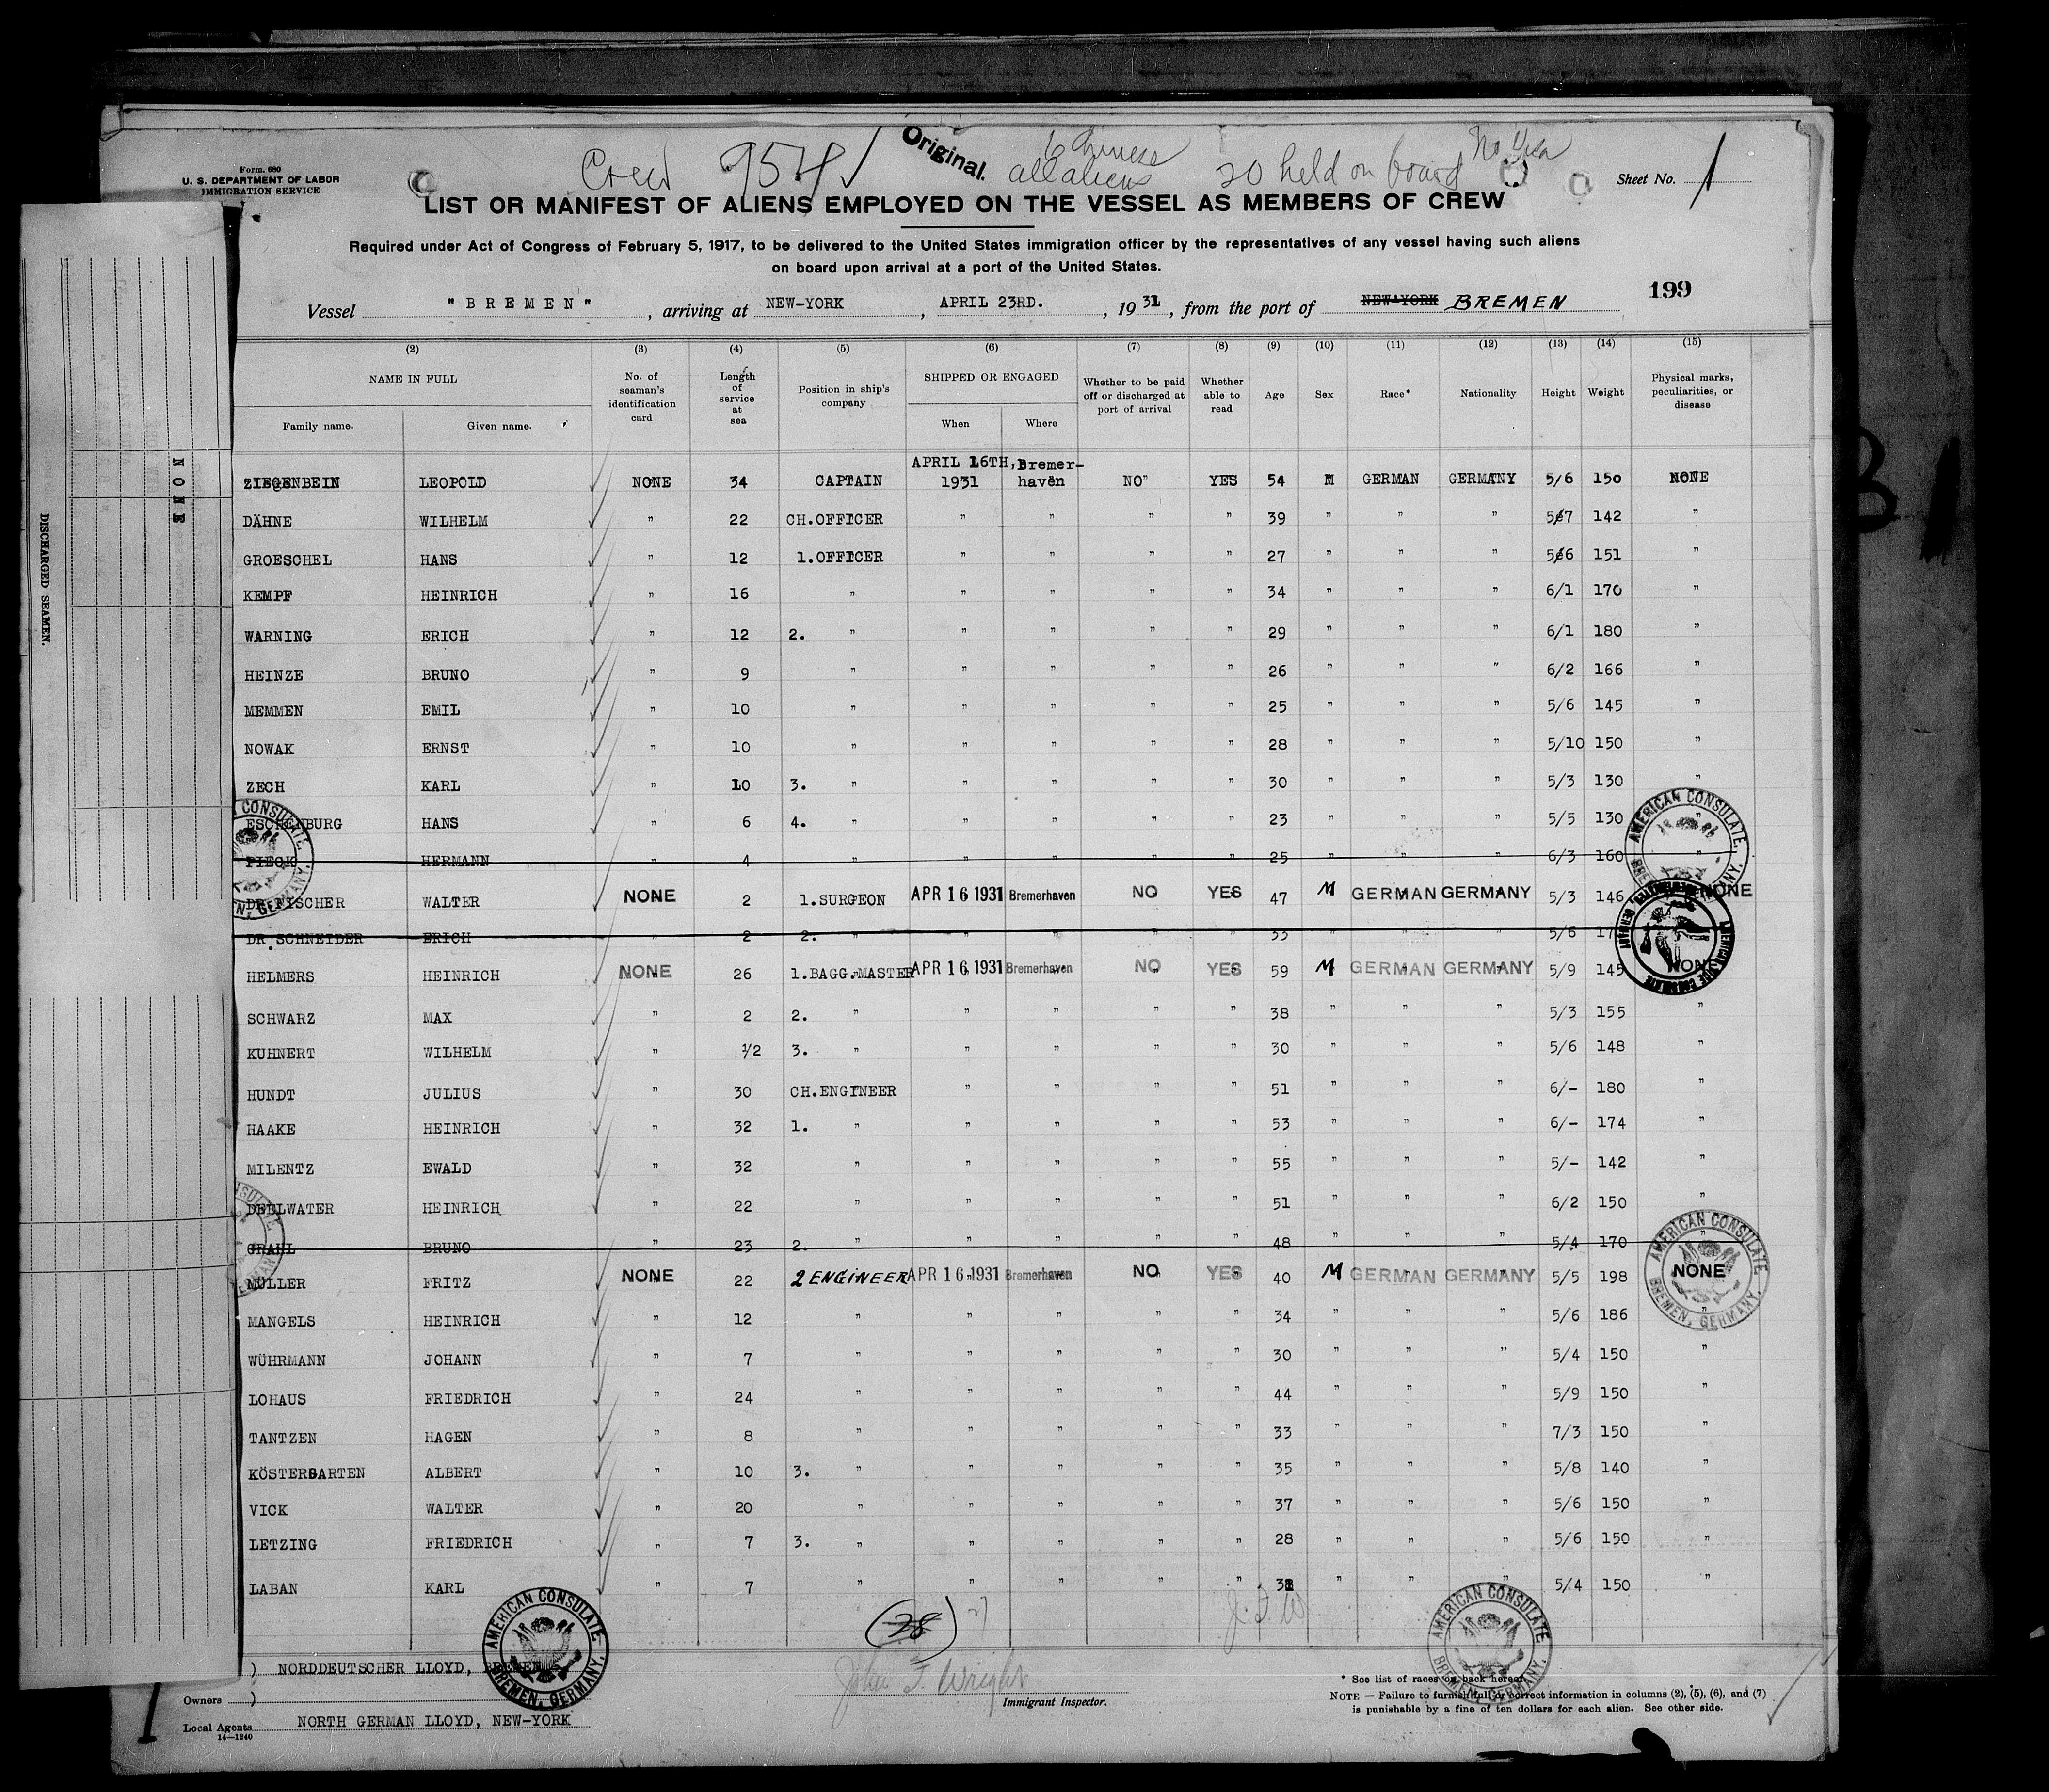 Form 680
U. S. DEPARTMENT OF LABOR
IMMIGRATION SERVICE
Crew 954
Original.
6 Chinese
all aliens
20 held on board
No Visa
Sheet No. 1
LIST OR MANIFEST OF ALIENS EMPLOYED ON THE VESSEL AS MEMBERS OF CREW
Required under Act of Congress of February 5, 1917, to be delivered to the United States immigration officer by the representatives of any vessel having such aliens
on board upon arrival at a port of the United States.
199
Vessel "BREMEN", arriving at NEW-YORK, APRIL 23RD., 1931, from the port of NEW-YORK BREMEN
(2) (3) (4) (5) (6) (7) (8) (9) (10) (11) (12) (13) (14) (15)
NAME IN FULL
Family name. Given name.
No. of seaman's identification card
Length of service at sea
Position in ship's company
SHIPPED OR ENGAGED
When Where
Whether to be paid off or discharged at port of arrival
Whether able to read
Age
Sex
Race*
Nationality
Height
Weight
Physical marks, peculiarities, or disease
ZIEGENBEIN LEOPOLD NONE 34 CAPTAIN APRIL 16TH, 1931 Bremer-haven NO" YES 54 M GERMAN GERMANY 5/6 150 NONE
DÄHNE WILHELM " 22 CH.OFFICER " " " " 39 " " " 567 142 "
GROESCHEL HANS " 12 1.OFFICER " " " " 27 " " " 566 151 "
KEMPF HEINRICH " 16 " " " " " 34 " " " 6/1 170 "
WARNING ERICH " 12 2. " " " " " 29 " " " 6/1 180 "
HEINZE BRUNO " 9 " " " " " 26 " " " 6/2 166 "
MEMMEN EMIL " 10 " " " " " 25 " " " 5/6 145 "
NOWAK ERNST " 10 " " " " " 28 " " " 5/10 150 "
ZECH KARL " 10 3. " " " " " 30 " " " 5/3 130 "
ESCHENBURG HANS " 6 4. " " " " " 23 " " " 5/5 130 "
PIECK HERMANN " 4 " " " " " 25 " " " 6/3 160 "
DR. FISCHER WALTER NONE 2 1.SURGEON APR 16 1931 Bremerhaven NO YES 47 M GERMAN GERMANY 5/3 146 NONE
DR. SCHNEIDER ERICH " 2 2. " " " " " " " " 5/6
HELMERS HEINRICH NONE 26 1.BAGG.-MASTER APR 16 1931 Bremerhaven NO YES 59 M GERMAN GERMANY 5/9 145 NONE
SCHWARZ MAX " 2 2. " " " " " 38 " " " 5/3 155 "
KUHNERT WILHELM " 1/2 3. " " " " " 30 " " " 5/6 148 "
HUNDT JULIUS " 30 CH.ENGINEER " " " " 51 " " " 6/- 180 "
HAAKE HEINRICH " 32 1. " " " " " 53 " " " 6/- 174 "
MILENTZ EWALD " 32 " " " " " 55 " " " 5/- 142 "
DEELWATER HEINRICH " 22 " " " " " 51 " " " 6/2 150 "
GRAHL BRUNO " 23 2. " " " " " 48 " " " 5/4 170 "
MÜLLER FRITZ NONE 22 2 ENGINEER APR 16 1931 Bremerhaven NO YES 40 M GERMAN GERMANY 5/5 198 NONE
MANGELS HEINRICH " 12 " " " " " 34 " " " 5/6 186 "
WÜHRMANN JOHANN " 7 " " " " " 30 " " " 5/4 150 "
LOHAUS FRIEDRICH " 24 " " " " " 44 " " " 5/9 150 "
TANTZEN HAGEN " 8 " " " " " 33 " " " 7/3 150 "
KÖSTERGARTEN ALBERT " 10 3. " " " " " 35 " " " 5/8 140 "
VICK WALTER " 20 " " " " " 37 " " " 5/6 150 "
LETZING FRIEDRICH " 7 3. " " " " " 28 " " " 5/6 150 "
LABAN KARL " 7 " " " " " " " " 5/4 150 "
(28) 27
J. F. W
NORDDEUTSCHER LLOYD, BREMEN
Owners
Local Agents NORTH GERMAN LLOYD, NEW-YORK
14—1240
John F. Wright
Immigrant Inspector.
* See list of races on back hereof.
NOTE — Failure to furnish full or correct information in columns (2), (5), (6), and (7)
is punishable by a fine of ten dollars for each alien. See other side.
AMERICAN CONSULATE, BREMEN, GERMANY.
AMERICAN CONSULATE, BREMEN, GERMANY.
AMERICAN CONSULATE BREMEN, GERMANY.
AMERICAN CONSULATE BREMEN, GERMANY.
NONE
DISCHARGED SEAMEN.